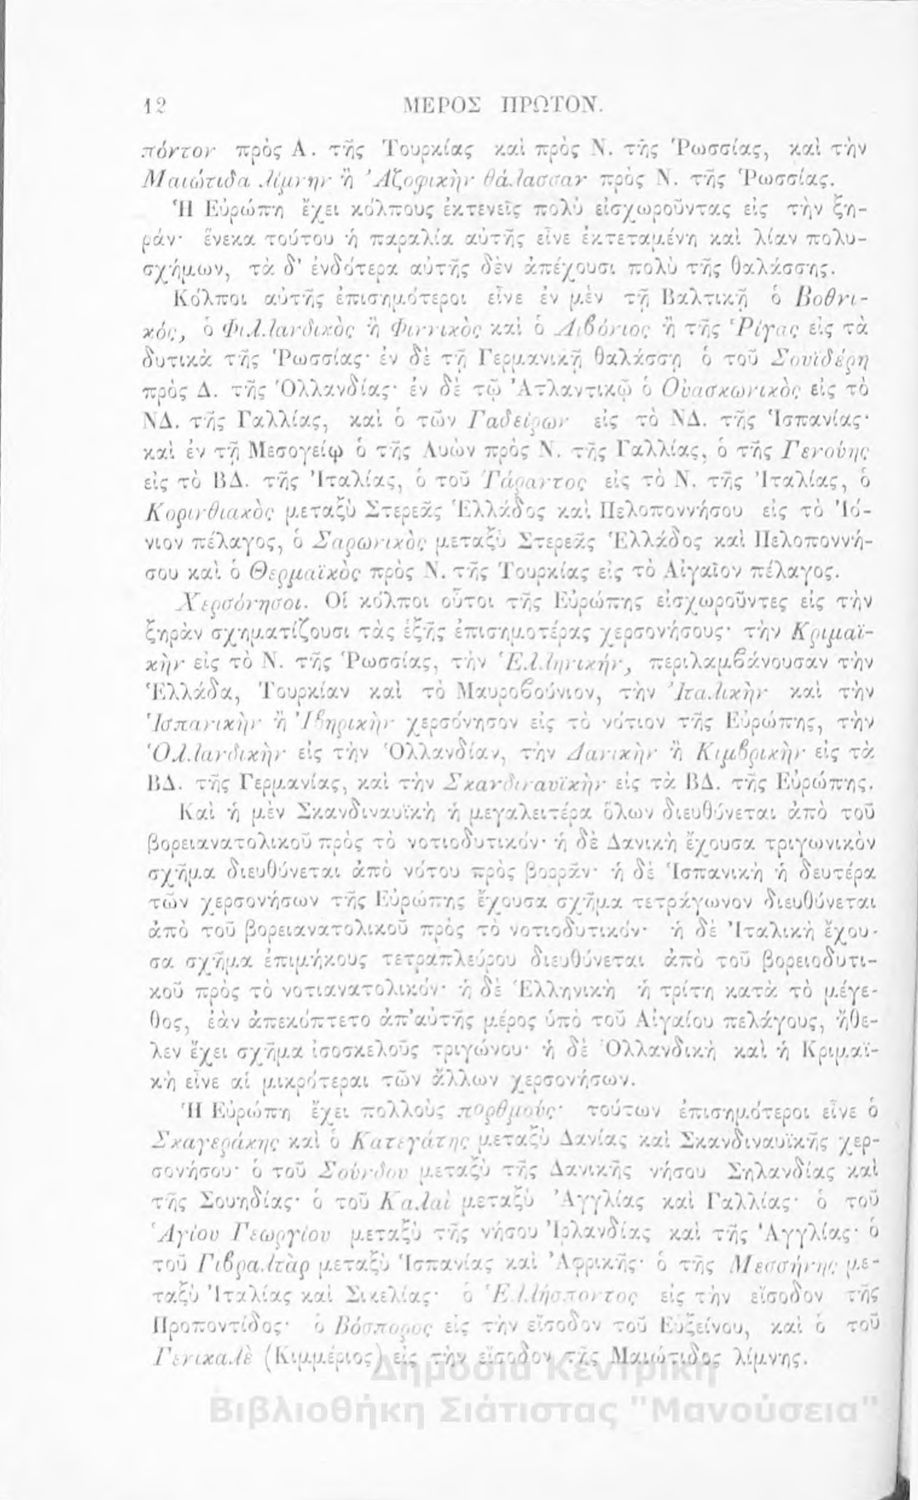 12 ΜΕΡΟΣ ΠΡΩΤΟΝ.
πόντον πρὸς Α. τῆς Τουρκίας καὶ πρὸς Ν. τῆς Ῥωσσίας, καὶ τὴν
Μαιώτιδα λίμνην ἢ Ἀζοφικὴν θάλασσαν πρὸς Ν. τῆς Ῥωσσίας.
Ἡ Εὐρώπη ἔχει κόλπους ἐκτενεῖς πολὺ εἰσχωροῦντας εἰς τὴν ξη-
ράν· ἕνεκα τούτου ἡ παραλία αὐτῆς εἶνε ἐκτεταμένη καὶ λίαν πολυ-
σχήμων, τὰ δ' ἐνδότερα αὐτῆς δὲν ἀπέχουσι πολὺ τῆς θαλάσσης.
Κόλποι αὐτῆς ἐπισημότεροι εἶνε ἐν μὲν τῇ Βαλτικῇ ὁ Βοθνι-
κός, ὁ Φιλλανδικὸς ἢ Φιννικὸς καὶ ὁ Λιβόνιος ἢ τῆς Ῥίγας εἰς τὰ
δυτικὰ τῆς Ῥωσσίας· ἐν δὲ τῇ Γερμανικῇ θαλάσσῃ ὁ τοῦ Σουϊδέρη
πρὸς Δ. τῆς Ὁλλανδίας· ἐν δὲ τῷ Ἀτλαντικῷ ὁ Οὐασκωνικὸς εἰς τὸ
ΝΔ. τῆς Γαλλίας, καὶ ὁ τῶν Γαδείρων εἰς τὸ ΝΔ. τῆς Ἱσπανίας·
καὶ ἐν τῇ Μεσογείῳ ὁ τῆς Λυὼν πρὸς Ν. τῆς Γαλλίας, ὁ τῆς Γενούης
εἰς τὸ ΒΔ. τῆς Ἰταλίας, ὁ τοῦ Τάραντος εἰς τὸ Ν. τῆς Ἰταλίας, ὁ
Κορινθιακὸς μεταξὺ Στερεᾶς Ἑλλάδος καὶ Πελοποννήσου εἰς τὸ Ἰό-
νιον πέλαγος, ὁ Σαρωνικὸς μεταξὺ Στερεᾶς Ἑλλάδος καὶ Πελοποννή-
σου καὶ ὁ Θερμαϊκὸς πρὸς Ν. τῆς Τουρκίας εἰς τὸ Αἰγαῖον πέλαγος.
Χερσόνησοι. Οἱ κόλποι οὗτοι τῆς Εὐρώπης εἰσχωροῦντες εἰς τὴν
ξηρὰν σχηματίζουσι τὰς ἑξῆς ἐπισημοτέρας χερσονήσους· τὴν Κριμαϊ-
κὴν εἰς τὸ Ν. τῆς Ῥωσσίας, τὴν Ἑλληνικήν, περιλαμβάνουσαν τὴν
Ἑλλάδα, Τουρκίαν καὶ τὸ Μαυροβούνιον, τὴν Ἰταλικὴν καὶ τὴν
Ἱσπανικὴν ἢ Ἰβηρικὴν χερσόνησον εἰς τὸ νότιον τῆς Εὐρώπης, τὴν
Ὁλλανδικὴν εἰς τὴν Ὁλλανδίαν, τὴν Δανικὴν ἢ Κιμβρικὴν εἰς τὰ
ΒΔ. τῆς Γερμανίας, καὶ τὴν Σκανδιναυϊκὴν εἰς τὰ ΒΔ. τῆς Εὐρώπης.
Καὶ ἡ μὲν Σκανδιναυϊκὴ ἡ μεγαλειτέρα ὅλων διευθύνεται ἀπὸ τοῦ
βορειανατολικοῦ πρὸς τὸ νοτιοδυτικόν· ἡ δὲ Δανικὴ ἔχουσα τριγωνικὸν
σχῆμα διευθύνεται ἀπὸ νότου πρὸς βορρᾶν· ἡ δὲ Ἱσπανικὴ ἡ δευτέρα
τῶν χερσονήσων τῆς Εὐρώπης ἔχουσα σχῆμα τετράγωνον διευθύνεται
ἀπὸ τοῦ βορειανατολικοῦ πρὸς τὸ νοτιοδυτικόν· ἡ δὲ Ἰταλικὴ ἔχου-
σα σχῆμα ἐπιμήκους τετραπλεύρου διευθύνεται ἀπὸ τοῦ βορειοδυτι-
κοῦ πρὸς τὸ νοτιανατολικόν· ἡ δὲ Ἑλληνικὴ ἡ τρίτη κατὰ τὸ μέγε-
θος, ἐὰν ἀπεκόπτετο ἀπ'αὐτῆς μέρος ὑπὸ τοῦ Αἰγαίου πελάγους, ἤθε-
λεν ἔχει σχῆμα ἰσοσκελοῦς τριγώνου· ἡ δὲ Ὁλλανδικὴ καὶ ἡ Κριμαϊ-
κὴ εἶνε αἱ μικρότεραι τῶν ἄλλων χερσονήσων.
Ἡ Εὐρώπη ἔχει πολλοὺς πορθμούς· τούτων ἐπισημότεροι εἶνε ὁ
Σκαγεράκης καὶ ὁ Κατεγάτης μεταξὺ Δανίας καὶ Σκανδιναυϊκῆς χερ-
σονήσου· ὁ τοῦ Σούνδου μεταξὺ τῆς Δανικῆς νήσου Σηλανδίας καὶ
τῆς Σουηδίας· ὁ τοῦ Καλαὶ μεταξὺ Ἀγγλίας καὶ Γαλλίας· ὁ τοῦ
Ἁγίου Γεωργίου μεταξὺ τῆς νήσου Ἰρλανδίας καὶ τῆς Ἀγγλίας· ὁ
τοῦ Γιβραλτὰρ μεταξὺ Ἱσπανίας καὶ Ἀφρικῆς· ὁ τῆς Μεσσήνης με-
ταξὺ Ἰταλίας καὶ Σικελίας· ὁ Ἑλλήσποντος εἰς τὴν εἴσοδον τῆς
Προποντίδος· ὁ Βόσπορος εἰς τὴν εἴσοδον τοῦ Εὐξείνου, καὶ ὁ τοῦ
Γενικαλὲ (Κιμμέριος) εἰς τὴν εἴσοδον τῆς Μαιώτιδος λίμνης.
Δημόσια Κεντρική
Βιβλιοθήκη Σιάτιστας "Μανούσεια"